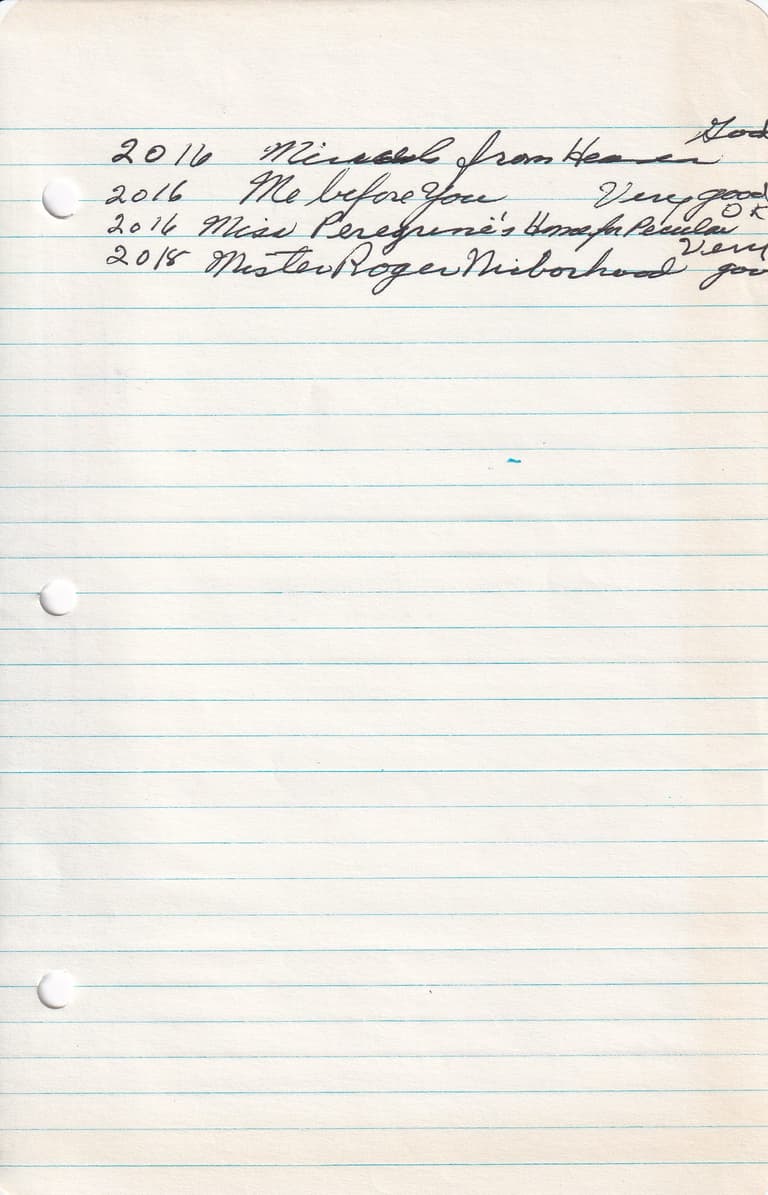 2016 Miracals from Heaven Good
2016 Me before You Very good
2016 Miss Peregrine's Home for Peculiar OK
2018 Mister Roger Nieborhood Very good